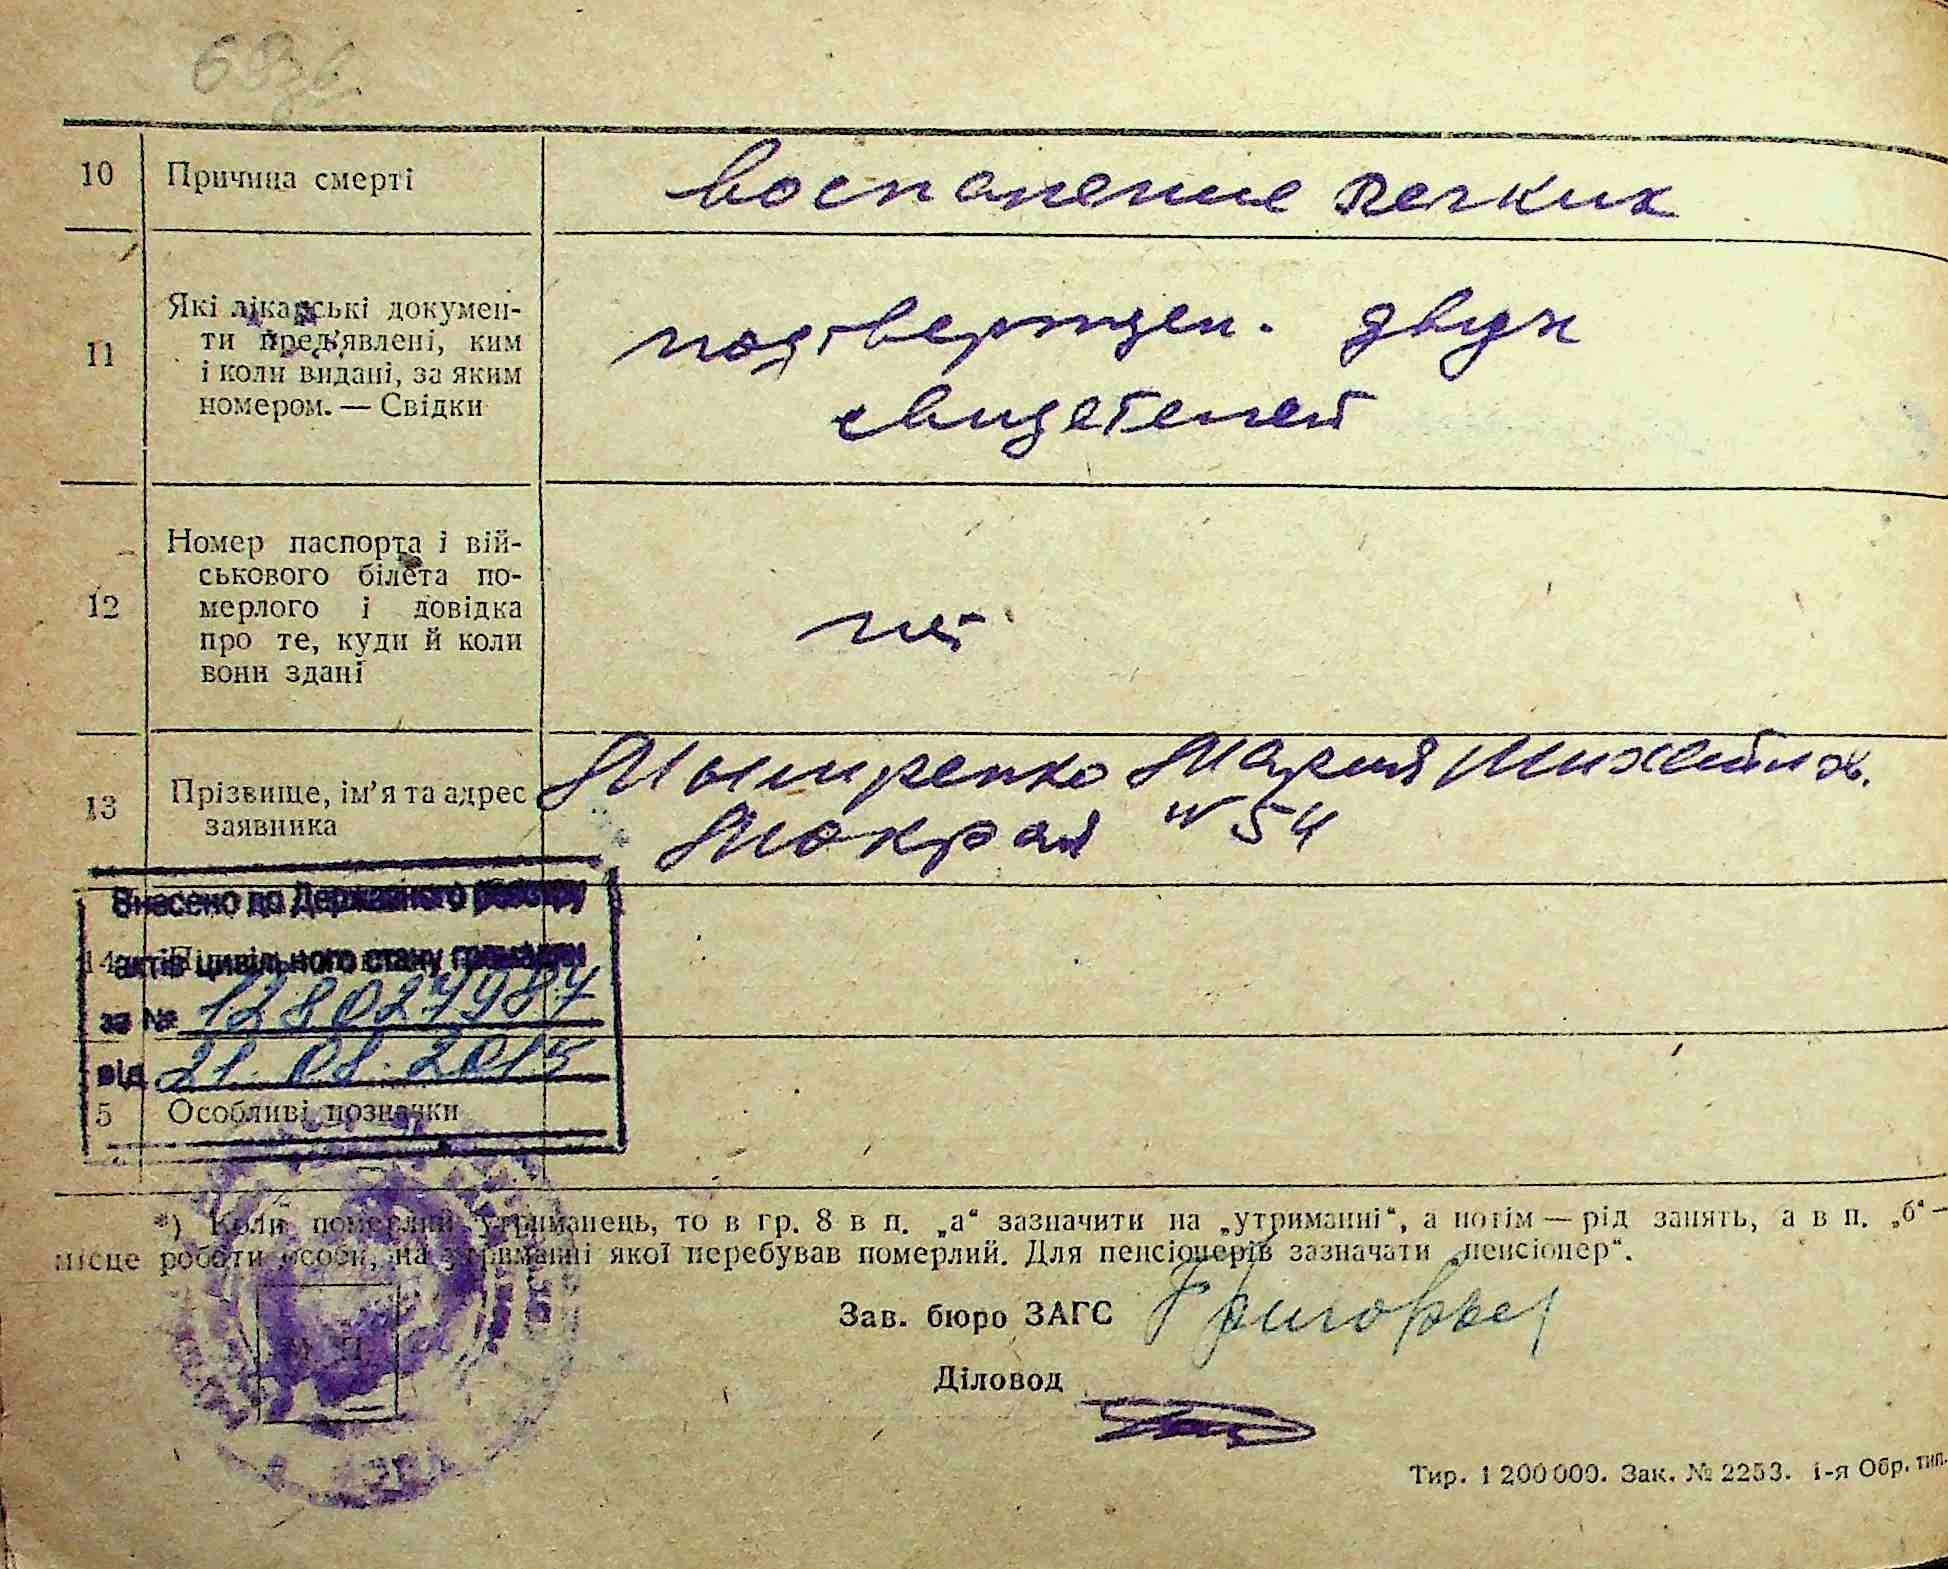 10 Причина смерті воспаление легких
11 Які лікарські докумен-
ти пред'явлені, ким
і коли видані, за яким
номером. — Свідки
подтвержден. двух
свидетелей
12 Номер паспорта і вій-
ськового білета по-
мерлого і довідка
про те, куди й коли
вони здані
нет
13 Прізвище, ім'я та адрес
заявника
Мария Михайлов.
Мокрая № 54
Внесено до Державного реєстру
14
актів цивільного стану громадян
за № 128027987
від 21.08.2015
5 Особливі позначки
*) Коли померлий утриманець, то в гр. 8 в п. „а“ зазначити на „утриманні“, а потім — рід занять, а в п. „б“ –
місце роботи особи, на утриманні якої перебував померлий. Для пенсіонерів зазначати „пенсіонер“.
Зав. бюро ЗАГС
Діловод
Тир. 1 200 000. Зак. № 2253. 1-я Обр. тип.